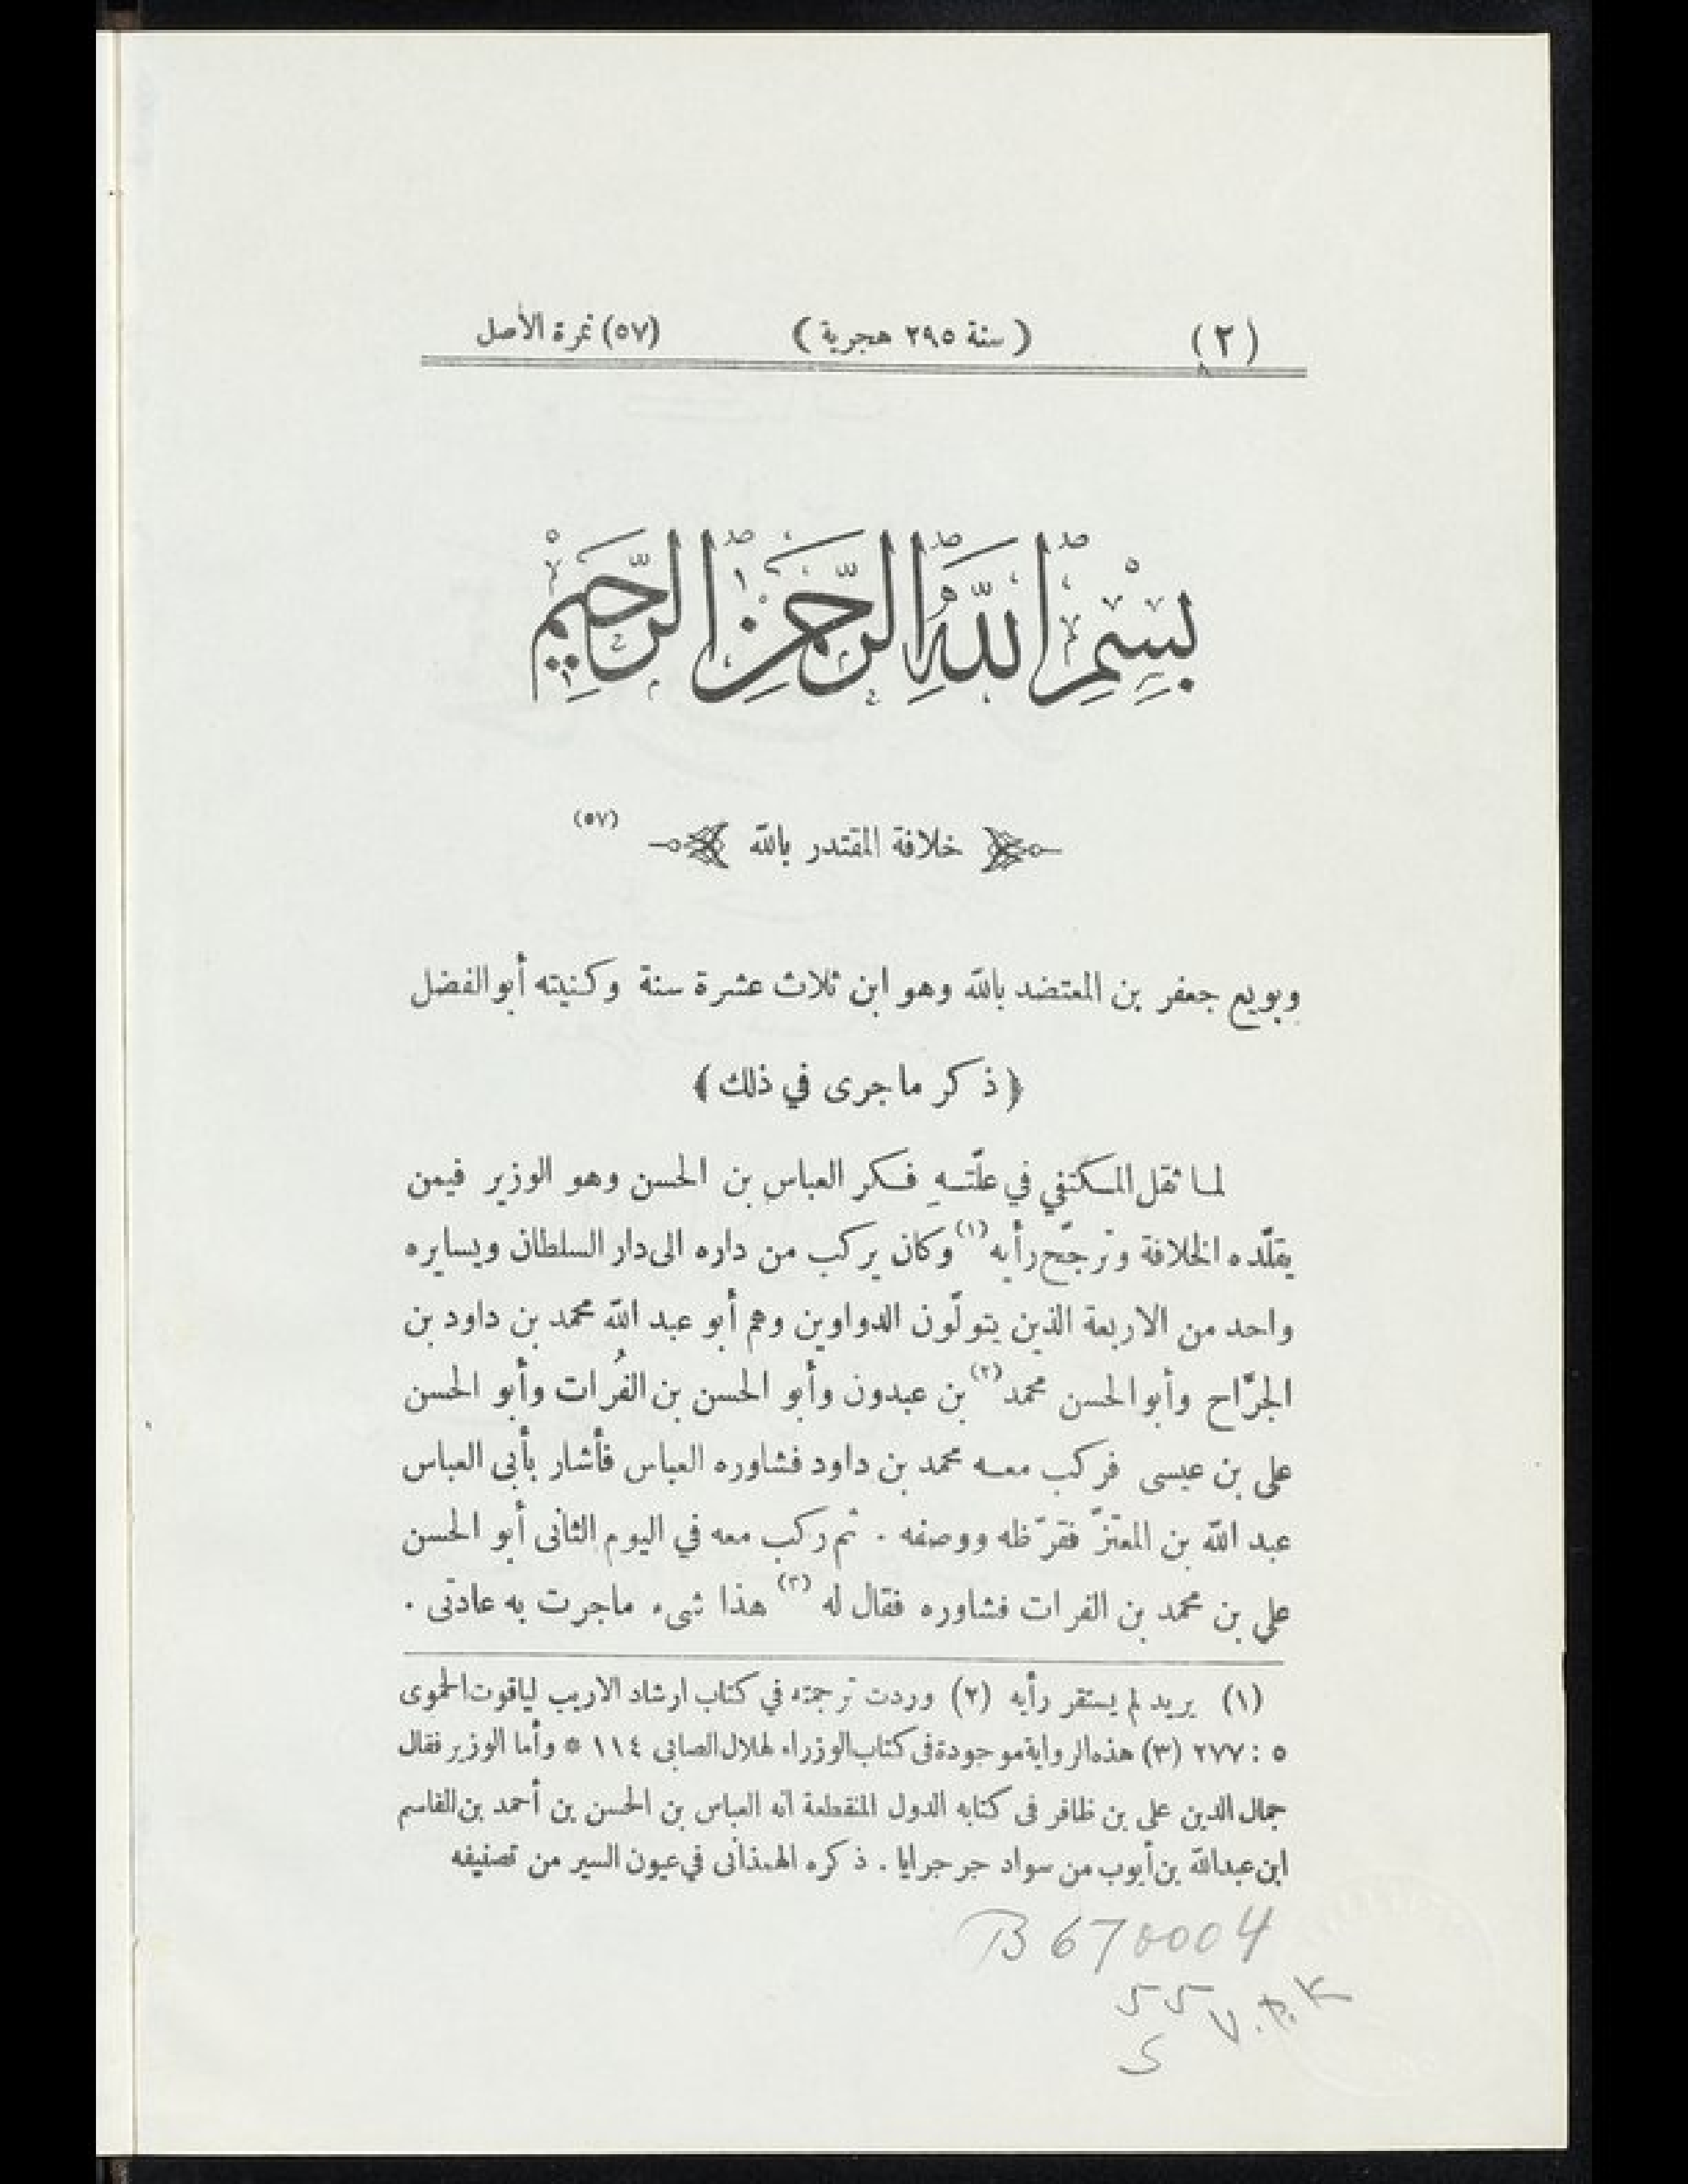 (٢) ( سنة ٢٩٥ هجرية ) (٥٧) نمرة الأصل
بِسْمِ اللّٰهِ الرَّحْمٰنِ الرَّحِيْمِ
خلافة المقتدر بالله (٥٧)
وبويع جعفر بن المعتضد بالله وهو ابن ثلاث عشرة سنة وكنيته أبو الفضل
﴿ ذكر ما جرى في ذلك ﴾
لما ثقل المكتفي في علّتهِ فكر العباس بن الحسن وهو الوزير فيمن
يقلّده الخلافة وترجّح رأيه (١) وكان يركب من داره الى دار السلطان ويسايره
واحد من الاربعة الذين يتولّون الدواوين وهم أبو عبد الله محمد بن داود بن
الجرّاح وأبو الحسن محمد (٢) بن عبدون وأبو الحسن بن الفُرات وأبو الحسن
على بن عيسى فركب معه محمد بن داود فشاوره العباس فأشار بأبى العباس
عبد الله بن المعتزّ فقرّظه ووصفه . ثم ركب معه في اليوم الثانى أبو الحسن
على بن محمد بن الفرات فشاوره فقال له (٣) هذا شىء ماجرت به عادتى .
(١) يريد لم يستقر رأيه (٢) وردت ترجمته في كتاب ارشاد الاريب لياقوت الحموى
٥ : ٢٧٧ (٣) هذه الرواية موجودة فى كتاب الوزراء لهلال الصابى ١١٤ * وأما الوزير فقال
جمال الدين على بن ظافر فى كتابه الدول المنقطعة انه العباس بن الحسن بن أحمد بن القاسم
ابن عبد الله بن أيوب من سواد جرجرايا . ذكره الهمذانى في عيون السير من تصنيفه
B 670004
55 V.P.K
5